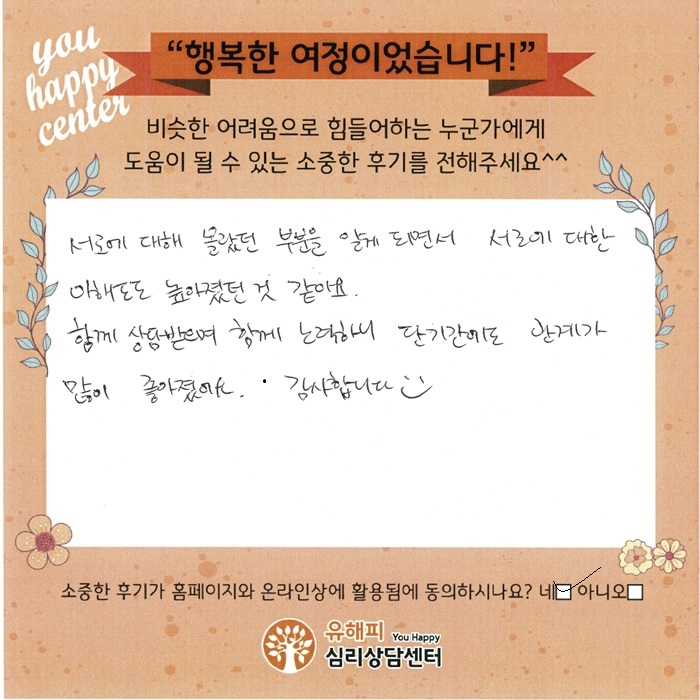 you
happy
center
“행복한 여정이었습니다!”
비슷한 어려움으로 힘들어하는 누군가에게
도움이 될 수 있는 소중한 후기를 전해주세요^^
서로에 대해 몰랐던 부분을 알게 되면서 서로에 대한
이해도도 높아졌던 것 같아요.
함께 상담받으며 함께 노력하니 단기간에도 관계가
많이 좋아졌어요. 감사합니다
소중한 후기가 홈페이지와 온라인상에 활용됨에 동의하시나요? 네 아니오
유해피 You Happy
심리상담센터